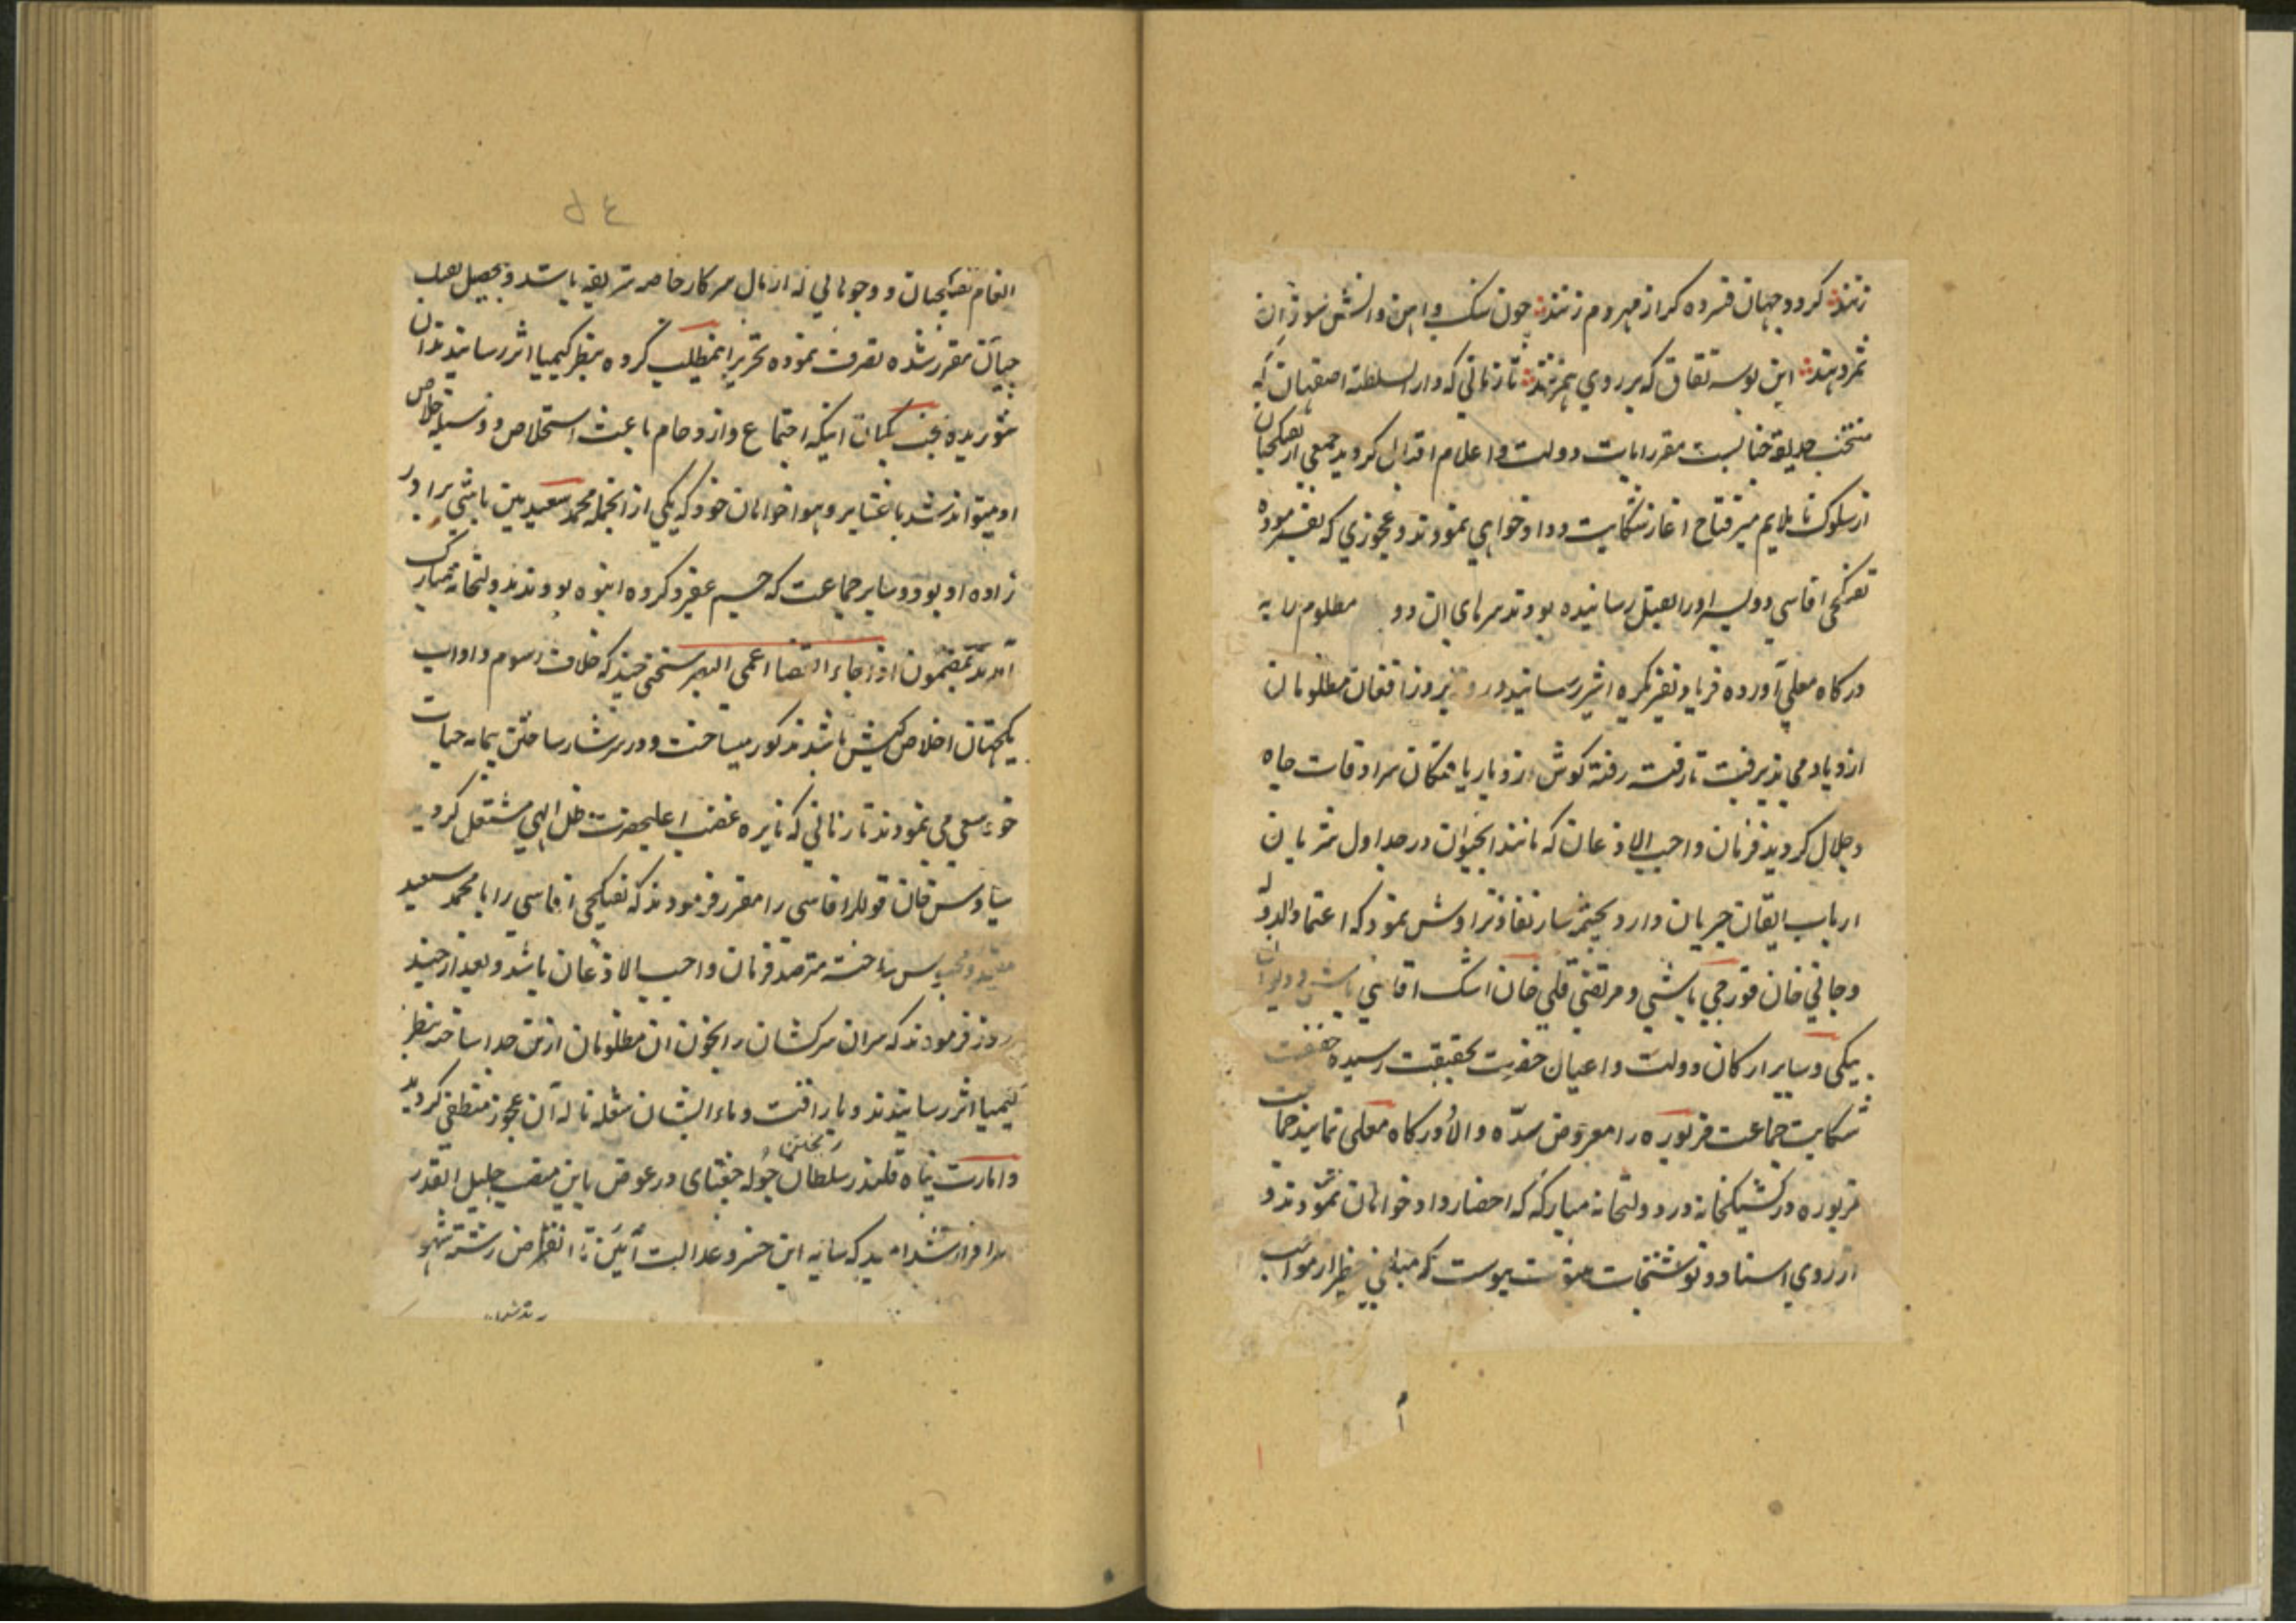 زنند کر دو جهان فسرده کر از مهر دم زنند چون سنک و اهن و انش سوزان
نمرد بند این بوسه نفاق که بر روی هم زنند تا زمانی که دار السلطنه اصفهان که
منتخب حدیقه جنانست مقر رایات دولت و اعلام اقبال کردید جمعی از تفنکچیان
از سلوک ناملایم میر فتاح اغاز شکایت و دادخواهی نمودند و عجوزی که بفرموده
تفنکچی اقاسی دو پسر او را بقتل رسانیده بودند سرهای ان دو مظلوم را به
درکاه معلی آورده فریاد و نفیر بکره اثیر رسانید و روز بروز افغان مظلومان
ازدیاد می پذیرفت تا رفته رفته کوش زد باریافتکان سرادقات جاه
و جلال کردید فرمان واجب الاذعان که مانند آبحیوان در جداول شریان
ارباب ایقان جریان دارد بچشمه سار نفاذ تراوش نمود که اعتماد الدوله
و جانی خان قورچی باشی و مرتضی قلی خان اشک اقاسی باشی و دیوان
بیکی و سایر ارکان دولت و اعیان حضرت بحقیقت رسیده حقیقت
شکایت جماعت مزبوره را معروض سدّه والا و درکاه معلی نمایند جماعت
مزبوره در کشیکخانه در دولتخانه مبارکه که احضار دادخواهان نمودند و
از روی اسناد و نوشتجات مثبوت پیوست که مبلغی خطیر از مواجب
انعام تفنکچیان و وجوهاتی که از مال سرکار خاصه شریفه باشد و بتحصیل
مقرر شده تصرف نموده تحریر اینمطلب کرده بنظر کیمیا اثر رسانیدند ان
شوریده بخت بکمان اینکه اجتماع و ازدحام باعث استخلاص و وسیله خلاص
او میتواند شد با عشایر و هواخواهان خود که یکی از انجمله محمد سعید مین باشی برادر
زاده او بود و سایر جماعت که جسیم غفیر و کروه انبوه بودند بدولتخانه مبارک
آمدند بمضمون اذا جاء القضا اعمی البصر سخنی چند که خلاف رسوم و اداب
یکجهتان اخلاص کیش باشد مذکور میساخت و در سرشار ساختن پیمانه حیات
خود سعی می نمودند تا زمانی که نایره غضب اعلیحضرت ظل الهی مشتعل کردید
سیاوش خان قوللر اقاسی را مقرر فرمودند که تفنکچی اقاسی را با محمد سعید
مقید و محبوس ساخته مترصد فرمان واجب الاذعان باشد و بعد از چند
روز فرمودند که سران سرکشان را بخون ان مظلومان از تن جدا ساخته بنظر
کیمیا اثر رسانیدند و باراقت دماء ایشان شعله ناله آن عجوز منطفی کردید
ریختن
و امارت پناه قلندر سلطان چوله جغتای در عوض باین منصب جلیل القدر
سرافراز شد امید که سایه این خسرو عدالت آئین تا انقراض رشته شهور